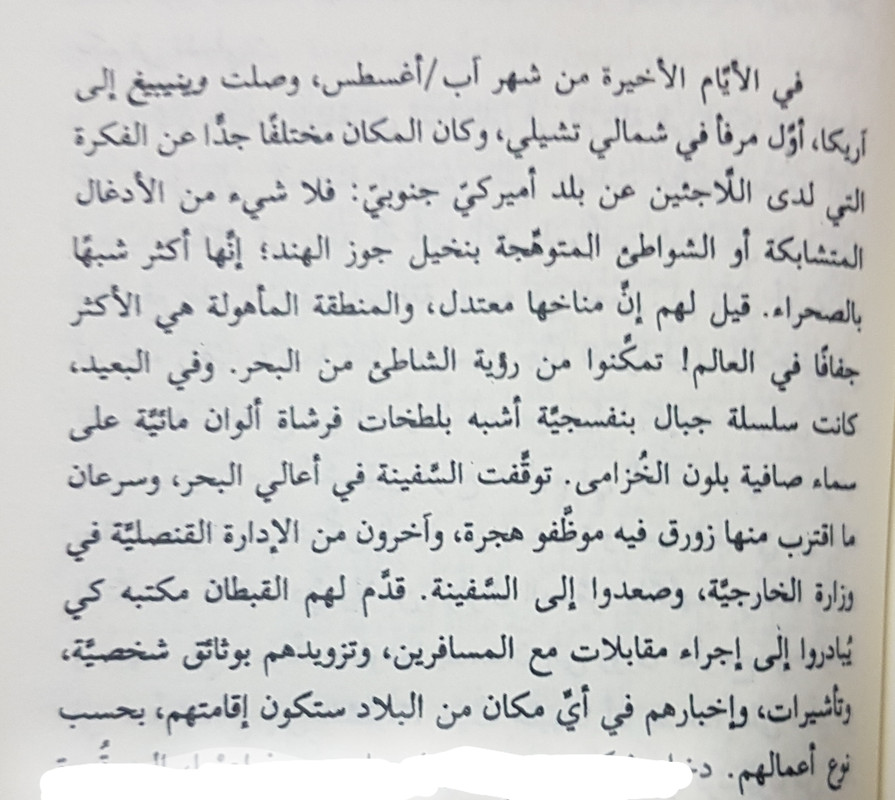 في الأيّام الأخيرة من شهر آب/أغسطس، وصلت وينيبيغ إلى
آريكا، أوّل مرفأ في شمالي تشيلي، وكان المكان مختلفًا جدًّا عن الفكرة
التي لدى اللّاجئين عن بلد أميركيّ جنوبيّ: فلا شيء من الأدغال
المتشابكة أو الشواطئ المتوهّجة بنخيل جوز الهند؛ إنّها أكثر شبهًا
بالصحراء. قيل لهم إنَّ مناخها معتدل، والمنطقة المأهولة هي الأكثر
جفافًا في العالم! تمكّنوا من رؤية الشاطئ من البحر. وفي البعيد،
كانت سلسلة جبال بنفسجيّة أشبه بلطخات فرشاة ألوان مائيّة على
سماء صافية بلون الخُزامى. توقّفت السّفينة في أعالي البحر، وسرعان
ما اقترب منها زورق فيه موظّفو هجرة، وآخرون من الإدارة القنصليّة في
وزارة الخارجيّة، وصعدوا إلى السّفينة. قدَّم لهم القبطان مكتبه كي
يُبادروا إلى إجراء مقابلات مع المسافرين، وتزويدهم بوثائق شخصيّة،
وتأشيرات، وإخبارهم في أيِّ مكان من البلاد ستكون إقامتهم، بحسب
نوع أعمالهم.